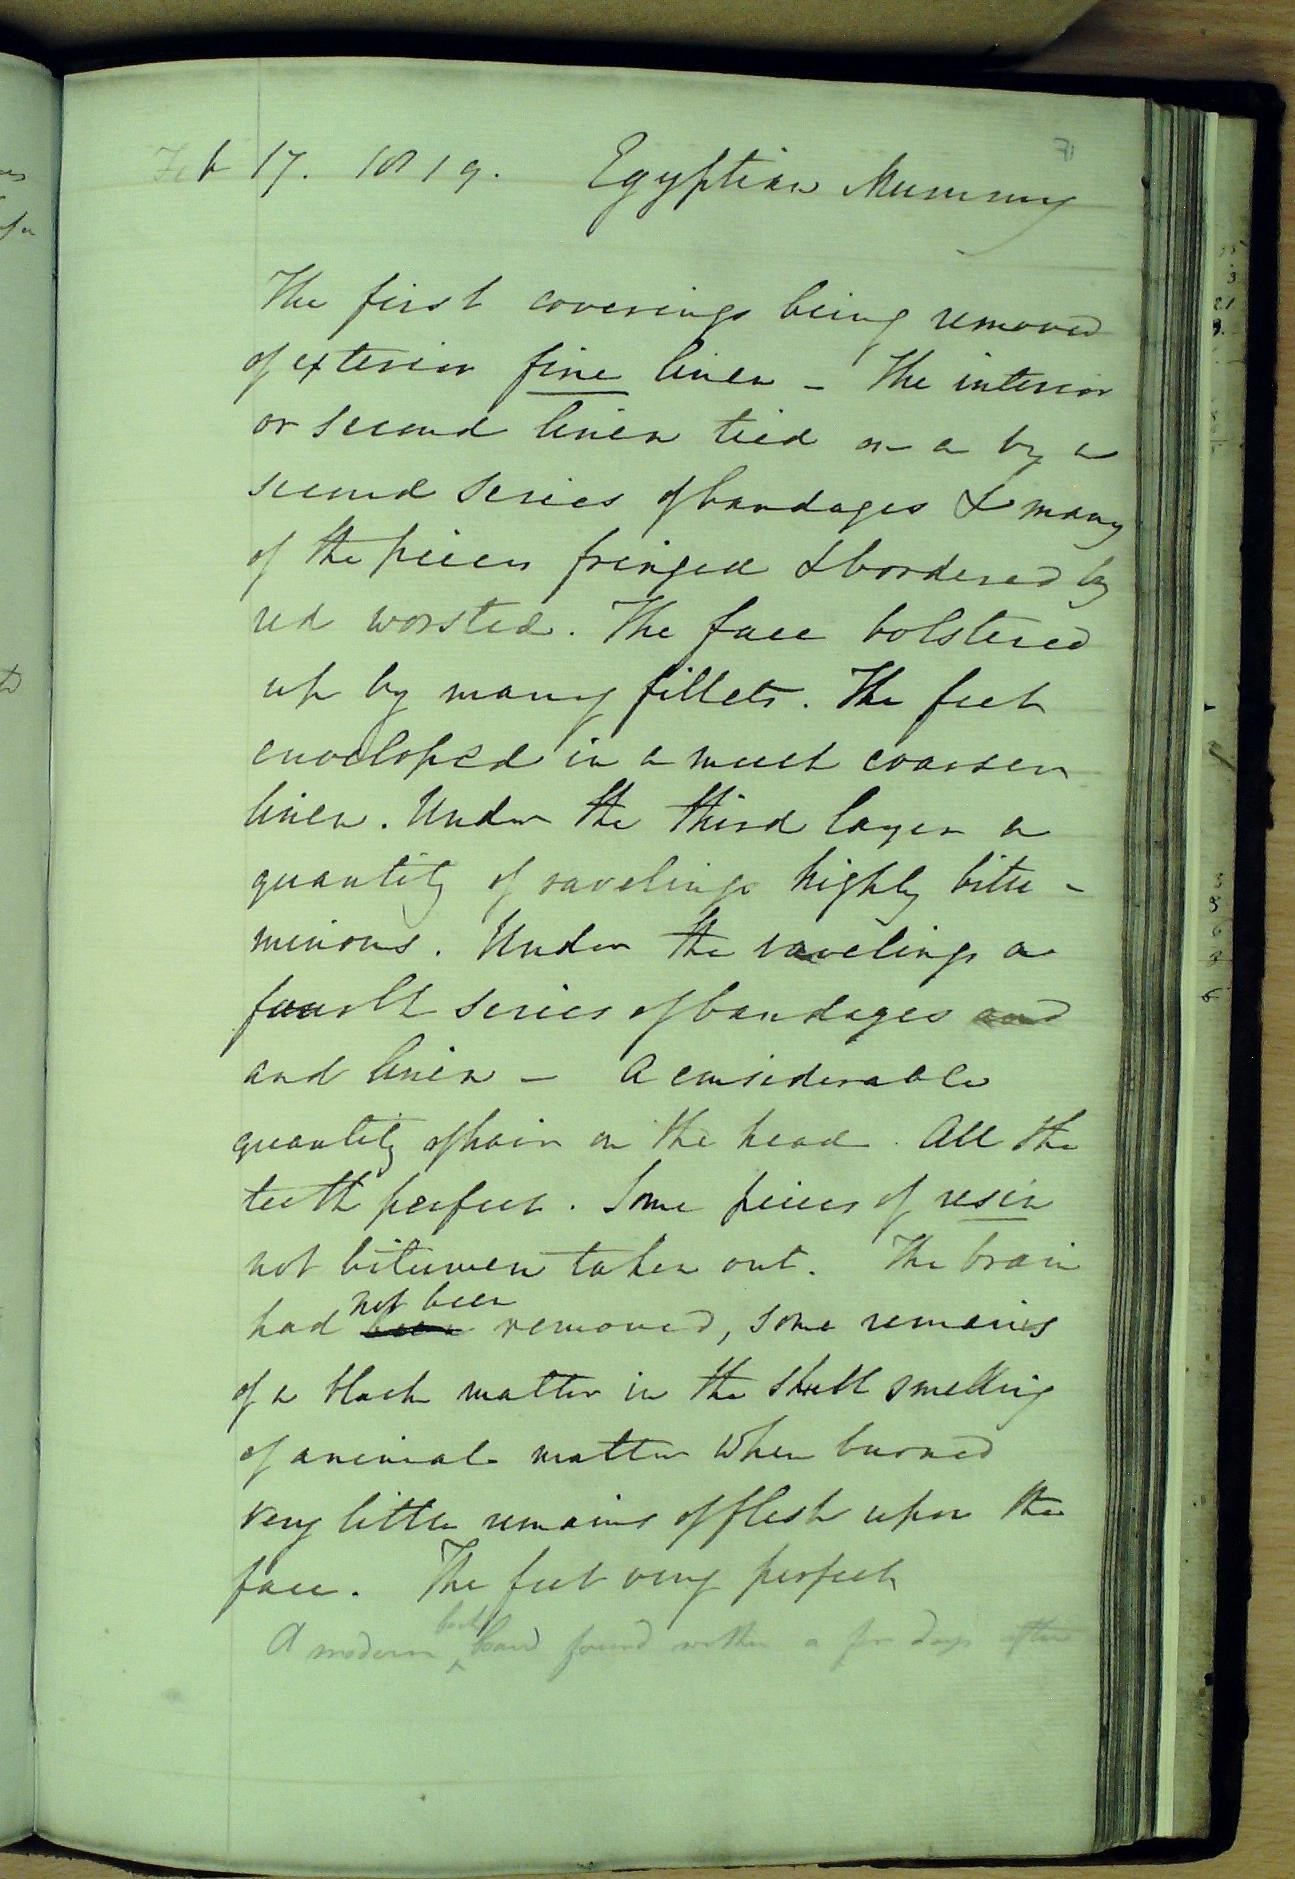 71
Feb 17. 1819. Egyptian Mummy
The first coverings being removed
of exterior fine linen - The interior
or second linen tied on a by a
second series of bandages & many
of the pieces fringed & bordered by
red worsted. The face bolstered
up by many fillets. The feet
enveloped in a much coarser
linen. Under the third layer a
quantity of ravelings highly bitu-
minous. Under the ravelings a
fourth series of bandages and
and linen - A considerable
quantity of hair on the head. All the
teeth perfect. Some pieces of resin
not bitumen taken out. The brain
not been
had been removed, some remains
of a black matter in the skull smelling
of animal matter when burned
very little remains of flesh upon the
face. The feet very perfect
A modern hand found within a few days after